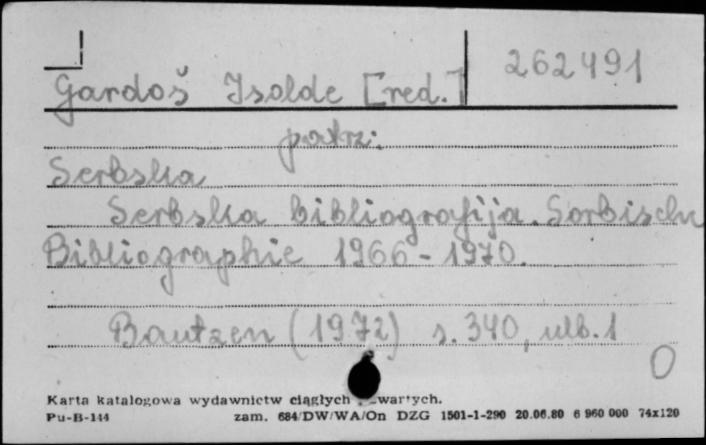 262491
Gardoš Isolde [red.]
patrz:
Serbska
Serbska bibliografija. Sorbische
Bibliographie 1966-1970.
Bautzen (1972) s. 340, ulb. 1
0
Karta katalogowa wydawnictw ciągłych zwartych.
Pu-B-144 zam. 684/DW/WA/On DZG 1501-1-290 20.06.80 6 960 000 74x120